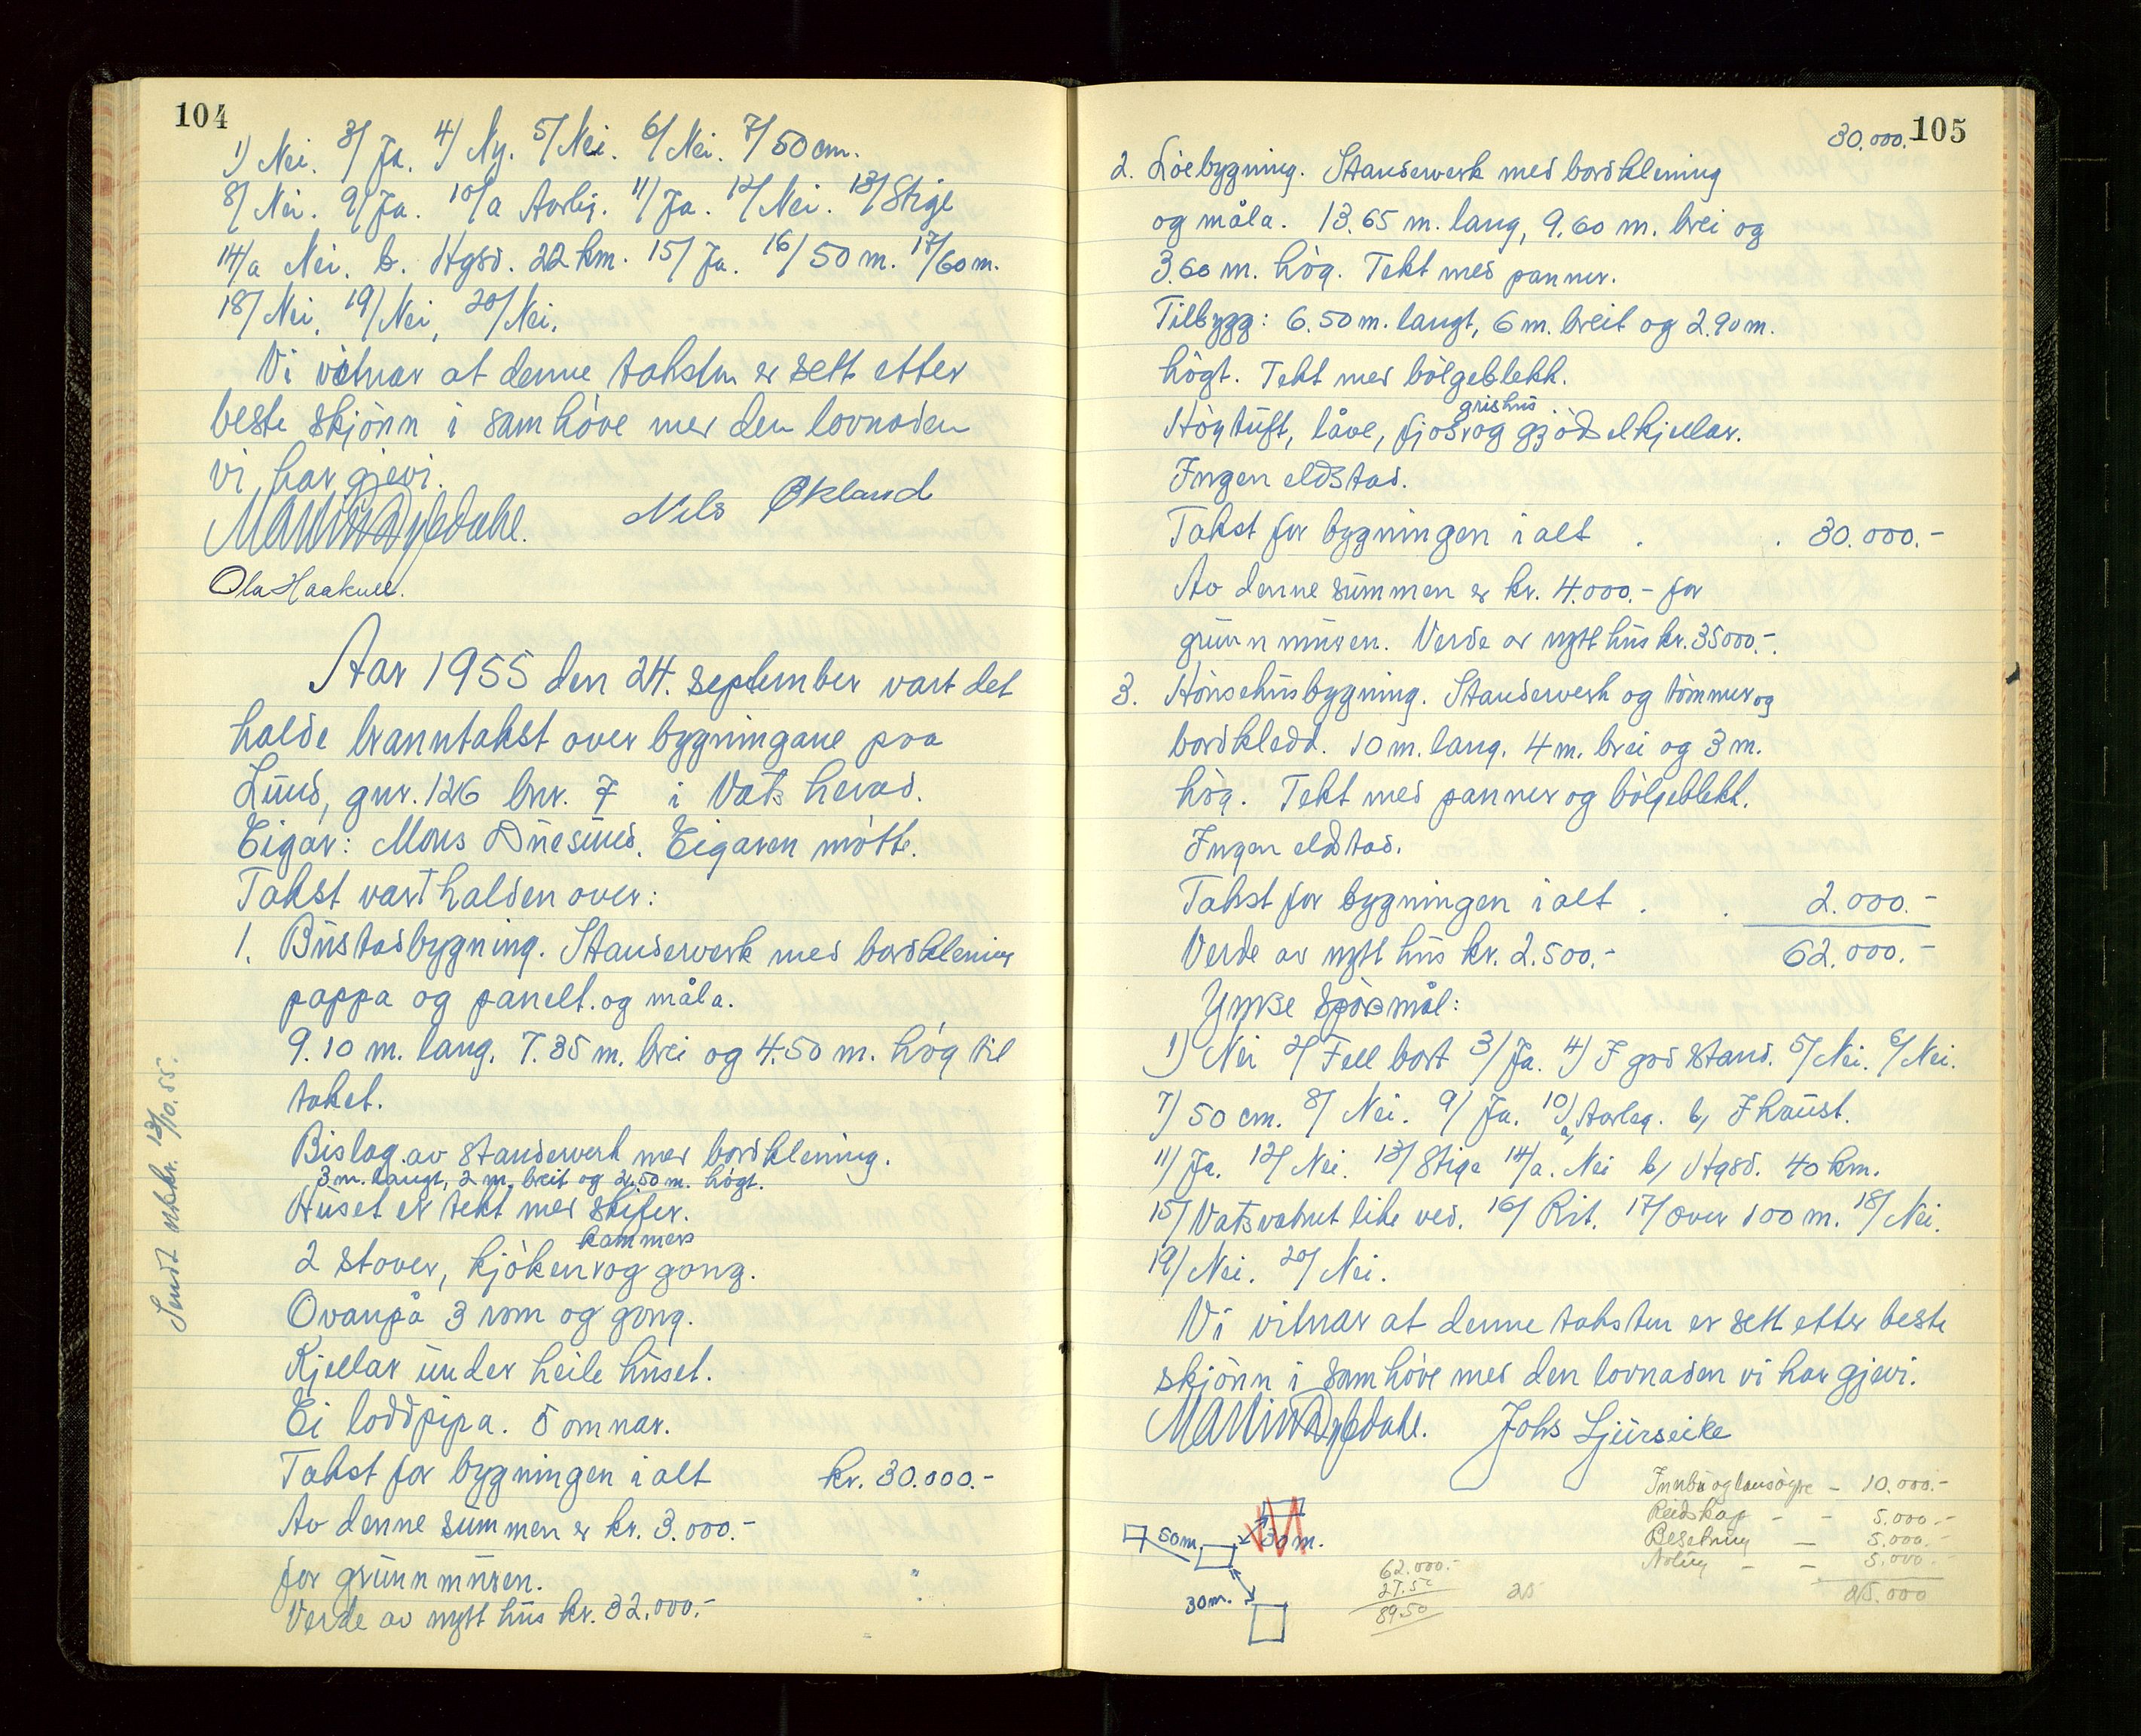 104
1) Nei. 3/ Ja. 4/ Ny. 5/ Nei. 6/ Nei. 7/ 50 cm.
8/ Nei. 9/ Ja. 10/a Aarleg. 11/ Ja. 12/ Nei. 13/ Stige
14/a Nei. b. Hgsd. 22 km. 15/ Ja. 16/ 50 m. 17/ 60 m.
18/ Nei, 19/ Nei, 20/ Nei.
Vi vitnar at denne taksten er sett etter
beste skjönn i samhöve med den lovnaden
vi har gjevi.
Nils Økland
Ola Haakull.
Aar 1955 den 24. september vart det
halde branntakst over bygningane paa
Lund, gnr. 126 bnr. 7 i Vats herad.
Eigar: Mons Duesund. Eigaren mötte.
Takst vart halden over:
1. Bustadbygning. Standerverk med bordkledning
pappa og panelt. og måla.
9.10 m. lang. 7.35 m. brei og 4.50 m. hög til
taket.
Bislag av standerverk med bordkledning.
3 m. langt, 2 m. breit og 2,50 m. högt.
Huset er tekt med skifer.
kammers
2 stover, kjöken og gang.
Ovanpå 3 rom og gang.
Kjellar under heile huset.
Ei loddpipa. 5 omnar.
Takst for bygningen i alt kr. 30.000.-
Av denne summen er kr. 3.000.-
for grunnmuren.
Verde av nytt hus kr. 32.000.-
Sendt utskr. 13/10.55.
105
30.000.-
2. Löebygning. Standerverk med bordklening
og måla. 13.65 m. lang, 9.60 m. brei og
3.60 m. hög. Tekt med panner.
Tilbygg: 6.50 m. langt, 6 m. breit og 2.90 m.
högt. Tekt med bölgeblekk.
grishus
Höytuft, låve, fjos og gjödselkjellar.
Ingen eldstad.
Takst for bygningen i alt . . 30.000.-
Av denne summen er kr. 4.000.- for
grunnmuren. Verde av nytt hus kr. 35000.-
3. Hönsehusbygning. Standerverk og tömmer og
bordkledd. 10 m. lang. 4 m. brei og 3 m.
hög. Tekt med panner og bölgeblekk.
Ingen eldstad.
Takst for bygningen i alt . . 2.000.-
Verde av nytt hus kr. 2.500.- 62.000.-
Ymse spörsmål:
1) Nei 2/ Fell bort 3/ Ja. 4/ I god stand. 5/ Nei. 6/ Nei.
7/ 50 cm. 8/ Nei. 9/ Ja. 10/ a, Aarleg. b, I haust.
11/ Ja. 12/ Nei. 13/ Stige 14/a. Nei b, Hgsd. 40 km.
15/ Vatsvatnet like ved. 16/ Rit. 17/ over 100 m. 18/ Nei.
19/ Nei. 20/ Nei.
Vi vitnar at denne taksten er sett etter beste
skjönn i samhöve med den lovnaden vi har gjevi.
Johs Ljurseike
Innbu og lausöyre - 10.000.-
Reidskap - - 5.000.-
Besetning - 5.000.-
Avling - - 5.000.-
25.000
50 m.
30 m.
30 m.
62.000.-
27.50
89.50
25